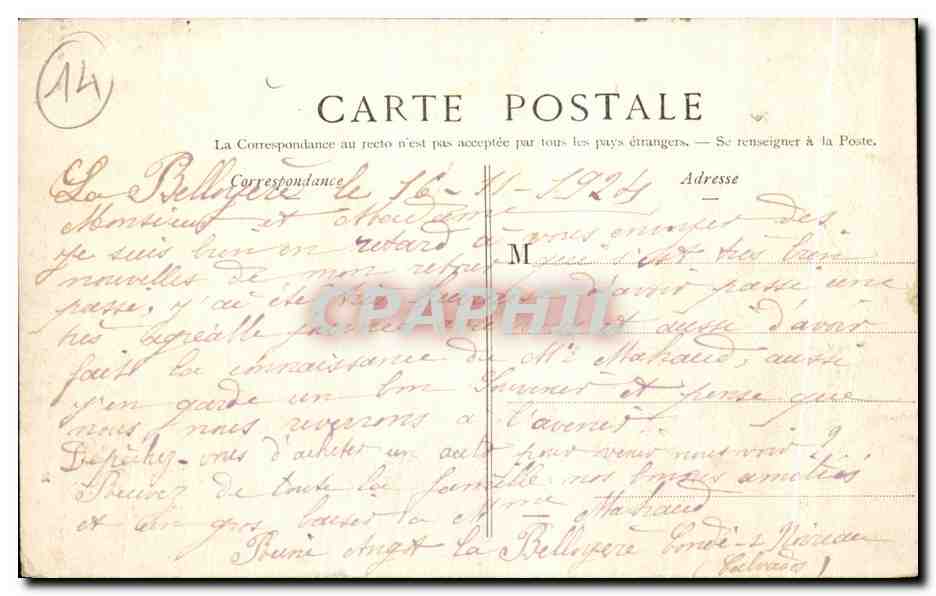 14
CARTE POSTALE
La Correspondance au recto n'est pas acceptée par tous les pays étrangers. — Se renseigner à la Poste.
Correspondance
Adresse
M
La Belloyere le 16-11-1924
Monsieur et Madame
Je suis bien en retard à vous envoyer des
nouvelles de mon retour qui s'est très bien
passe. j'ai été très d'avoir passé une
très agréable journée et aussi d'avoir
fait la connaissance de Mr Mahaud, aussi
j'en garde un bon Souvenir et pense que
nous nous reverrons a l'avenir
Dépéchez-vous d'acheter un auto pour venir nous voir
de toute la famille nos bonnes amitiés
et un gros baiser a Mme Mahaud
Angot la Belloyere Condé-s Noireau
(Calvados)
CPAPHIL